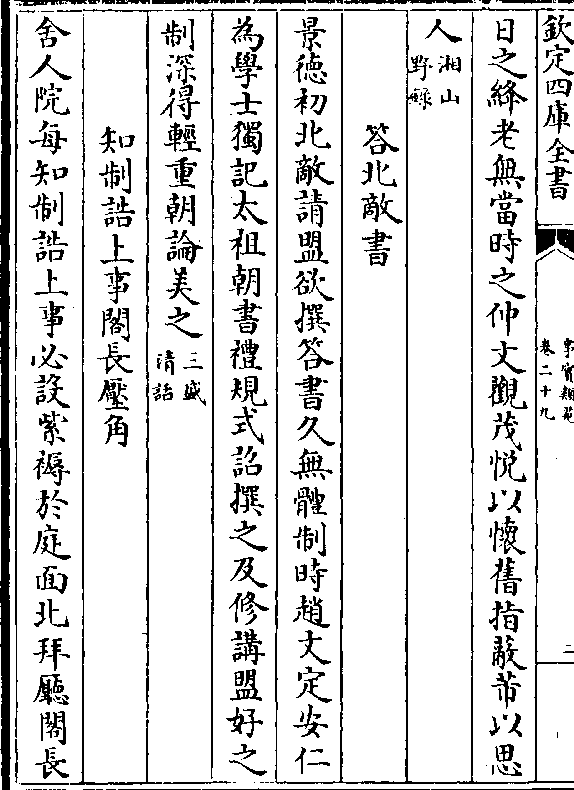 欽定四庫全書
事實類苑
卷二十九
二
日之絳老無當時之仲文觀茂悦以懷舊指蔽芾以思
人湘山
野錄
答北敵書
景德初北敵請盟欲撰答書久無體制時趙文定安仁
為學士獨記太祖朝書禮規式詔撰之及修講盟好之
制深得輕重朝論美之三盛
清話
知制誥上事閣長壓角
舍人院每知制誥上事必設紫褥於庭面北拜廳閣長